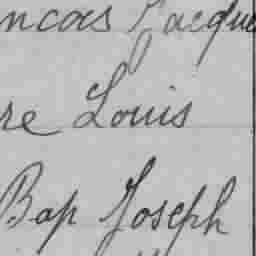 ncois Jacque
re Louis
Bap Joseph